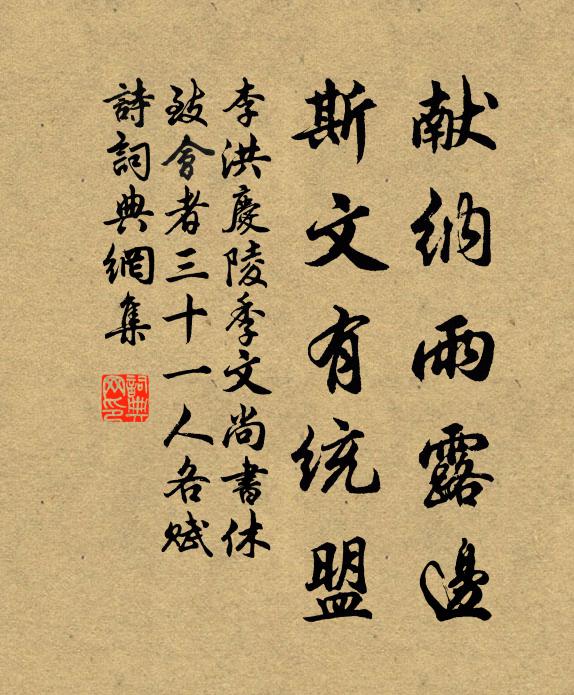 献纳雨露邊
斯文有统盟
李洪慶陵季文尚書休
致會者三十一人各赋
詩詞典網集
詞典網印